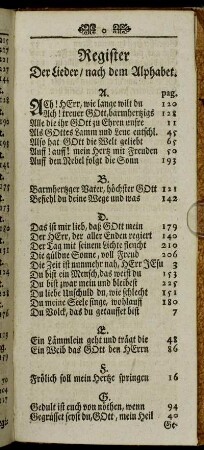 0
Register
Der Lieder/ nach dem Alphabet.
A.
pag.
ACh! HErr, wie lange wilt du 120
Ach! treuer GOtt, barmhertzigs 128
Alle die ihr GOtt zu Ehren unsre 11
Als GOttes Lamm und Leue entschl. 45
Also hat GOtt die Welt geliebt 65
Auff! auff! mein Hertz mit Freuden 50
Auff den Nebel folgt die Sonn 193
B.
Barmhertzger Vater, höchster GOtt 121
Befiehl du deine Wege und was 142
D.
Das ist mir lieb, daß GOtt mein 179
Der HErr, der aller Enden regiert 140
Der Tag mit seinem Lichte fleucht 210
Die güldne Sonne, voll Freud 206
Die Zeit ist nunmehr nah, HErr JEsu 3
Du bist ein Mensch, das weist du 153
Du bist zwar mein und bleibest 225
Du liebe Unschuld du, wie schlecht 150
Du meine Seele singe, wohlauff 180
Du Volck, das du getauffet bist 7
E.
Ein Lämmlein geht und trägt die 48
Ein Weib das GOtt den HErrn 86
F.
Frölich soll mein Hertze springen 16
G.
Gedult ist euch von nöthen, wenn 94
Gegrüsset seyst du, GOtt, mein Heil 40
Ge-